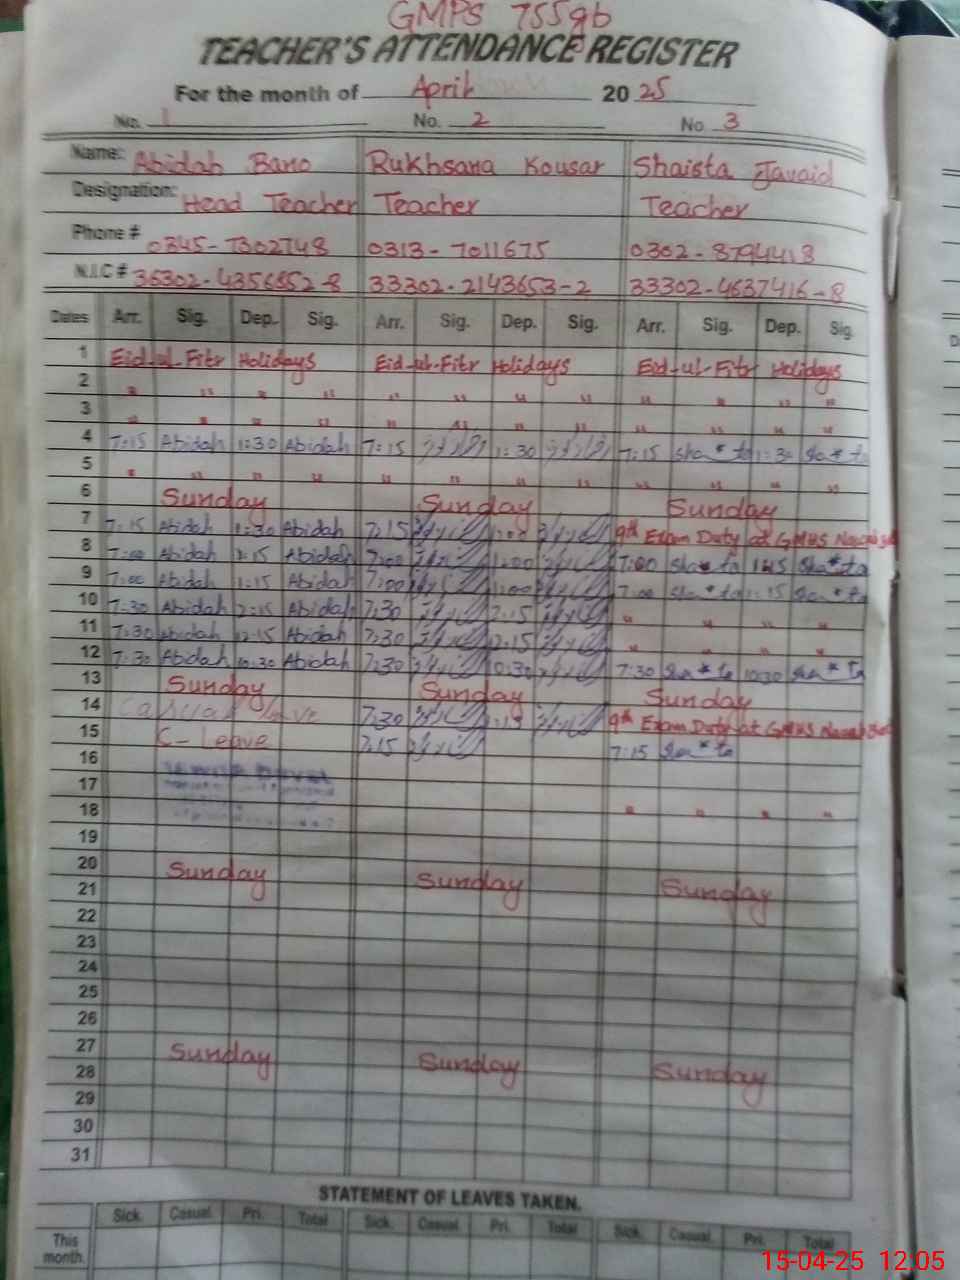 GMPS 755gb
TEACHER'S ATTENDANCE REGISTER
For the month of April 2025
No. 1 No. 2 No. 3
Name: Abidah Bano Rukhsana Kousar Shaista Javaid
Designation: Head Teacher Teacher Teacher
Phone # 0345-7302748 0313-7011675 0302-8794418
N.I.C # 36302-4356552-8 33302-2143653-2 33302-4637416-8
Dates Arr. Sig. Dep. Sig. Arr. Sig. Dep. Sig. Arr. Sig. Dep. Sig.
1 Eid-ul-Fitr Holidays Eid-ul-Fitr Holidays Eid-ul-Fitr Holidays
2 " " " " " " " " " " " "
3 " " " " " " " " " " " "
4 7:15 Abidah 1:30 Abidah 7:15 1:30 7:15 Sha*ta 1:30 Sha*ta
5 " " " " " " " " " " " "
6 Sunday Sunday Sunday
7 7:15 Abidah 1:30 Abidah 7:15 9th Exam Duty at GMHS
8 7:00 Abidah 1:15 Abidah 7:00 1:00 7:00 Sha*ta 1:15 Sha*ta
9 7:00 Abidah 1:15 Abidah 7:00 1:00 7:00 Sha*ta 1:15 Sha*ta
10 7:30 Abidah 2:15 Abidah 7:30 2:15 " " " "
11 7:30 Abidah 12:15 Abidah 7:30 2:15 " " " "
12 7:30 Abidah 10:30 Abidah 7:30 10:30 7:30 Sha*ta 10:30 Sha*ta
13 Sunday Sunday Sunday
14 Casual leave 7:30 9th Exam Duty at GMHS
15 C-Leave 7:15 7:15 Sha*ta
16
17
18 " " " "
19
20 Sunday Sunday Sunday
21
22
23
24
25
26
27 Sunday Sunday Sunday
28
29
30
31
STATEMENT OF LEAVES TAKEN.
Sick. Casual. Pri. Total Sick. Casual. Pri. Total Sick. Casual. Pri. Total
This month.
15-04-25 12:05